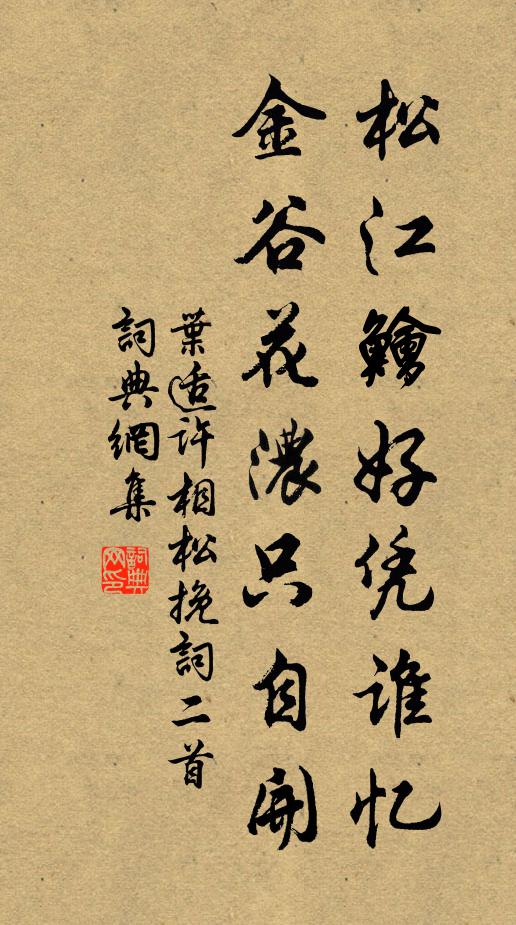 松江鱠好凭谁忆
金谷花濃只自開
葉適許相松挽詞二首
詞典網集
詞典网印